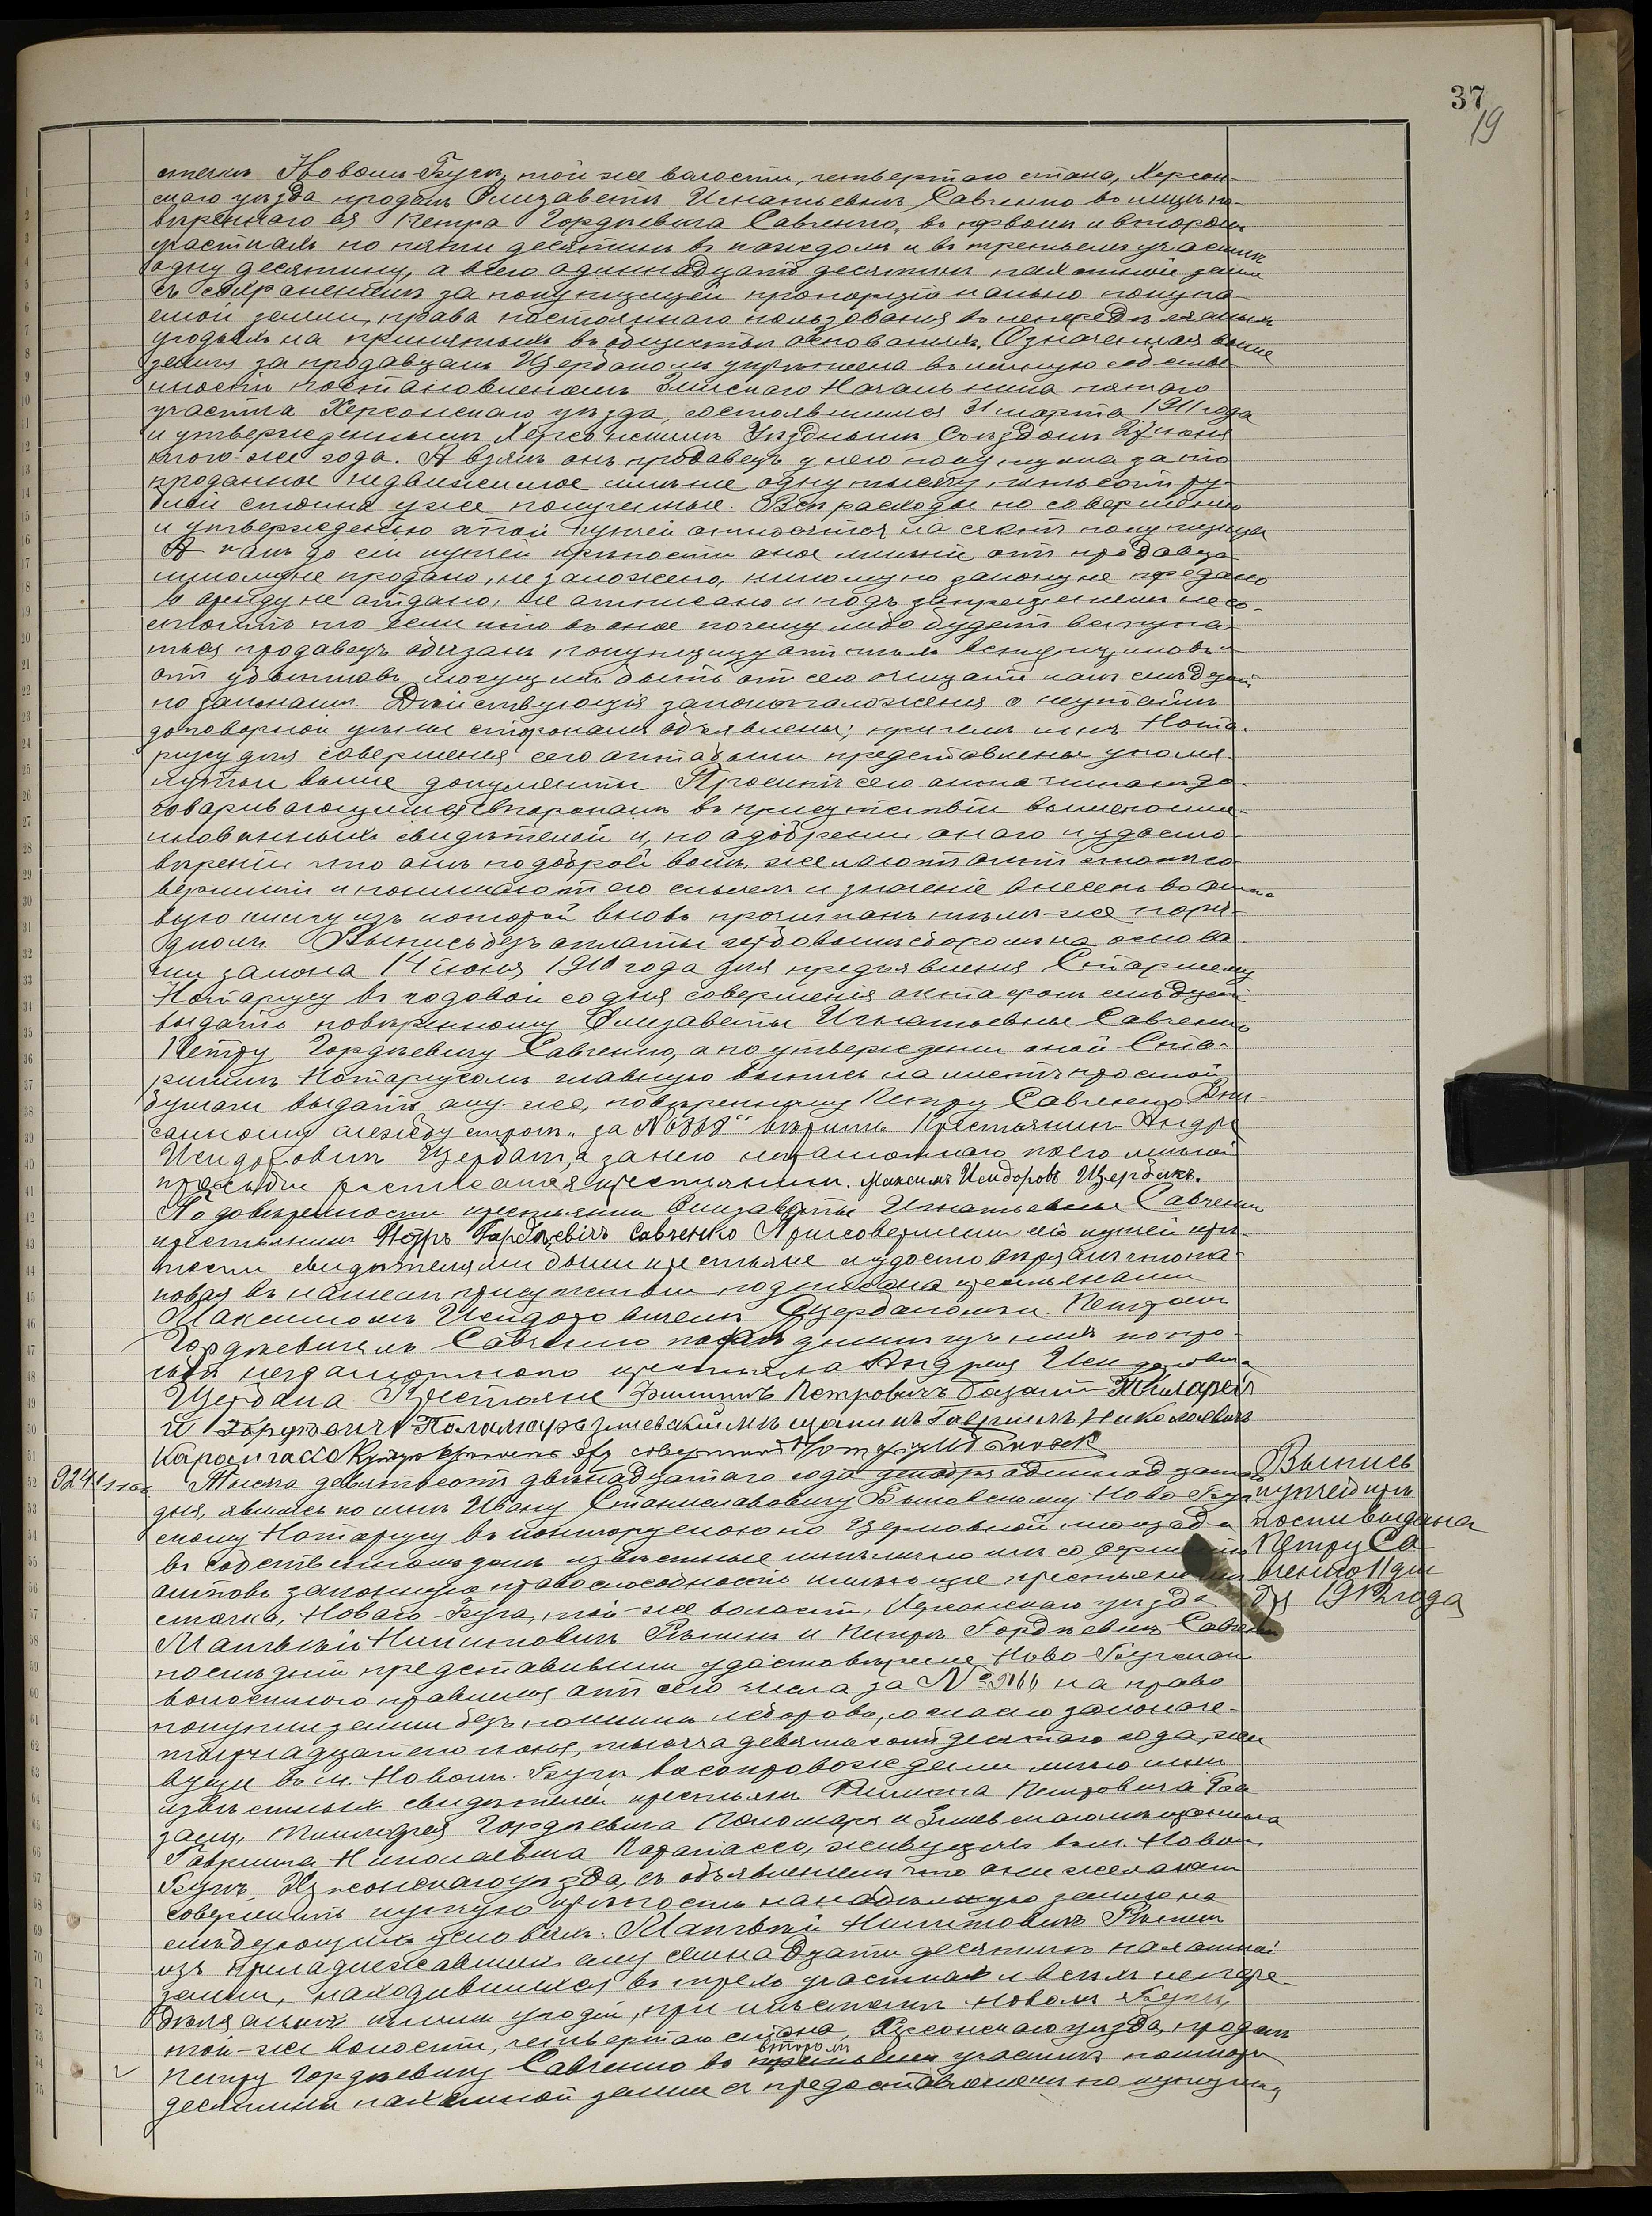 37
19
стечкѣ Новомъ-Бугѣ, той же волости, четвертаго стана, Херсон-
скаго уѣзда продалъ Елизаветѣ Игнатьевнѣ Савченко въ лицѣ по-
вѣреннаго ея Петра Гордѣевича Савченко, въ первомъ и второмъ
участкахъ по пяти десятинъ въ каждомъ и въ третьемъ участкѣ
одну десятину, а всего одиннадцать десятинъ пахатной земли
съ сохраненіемъ за покупщицей пропорціонально покупа-
емой земли, права постояннаго пользованія въ непередѣляемыхъ
угодьяхъ на принятыхъ въ обществѣ основаніяхъ. Означенная выше
земля за продавцомъ Щербакомъ укрѣплена въ личную собствен-
ность постановленіемъ Земскаго Начальника пятаго
участка Херсонскаго уѣзда, состоявшимся 31 марта 1911 года
и утвержденнымъ Херсонскимъ Уѣзднымъ Съѣздомъ 27 іюня
того-же года. А взялъ онъ продавецъ у него покупщика за то
проданное недвижимое имѣніе одну тысячу пятьсотъ ру-
блей сполна уже полученные. Всѣ расходы по совершенію
и утвержденію этой купчей относятся на счетъ покупщицы
А какъ до сей купчей крѣпости оное имѣніе отъ продавца
никому не продано, не заложено, никому по закону не предано
въ аренду не отдано, не отписано и подъ запрещеніемъ не со-
стоитъ то если кто въ оное почему либо будетъ вступа-
ться продавецъ обязанъ покупщицу отъ тѣхъ вступщиковъ и
отъ убытковъ могущихъ быть отъ сего очищать какъ слѣдуетъ
по законамъ. Дѣйствующія законоположенія о неустойкѣ
договорной цѣны сторонамъ объявлены; причемъ мнѣ Нота-
ріусу для совершенія сего акта были представлены упомя-
нутые выше документы Проектъ сего акта читанъ до-
говаривающимся сторонамъ въ присутствіи вышепоиме-
нованныхъ свидѣтелей и, по одобреніи онаго и удосто-
вѣреніи что они по доброй волѣ желаютъ актъ этотъ со-
вершить и понимаютъ его смыслъ и значеніе внесенъ въ акто-
вую книгу изъ которой вновь прочитанъ тѣмъ-же поряд-
комъ. Выпись безъ оплаты гербовымъ сборомъ на основа-
ніи закона 14 іюня 1910 года для предъявленія Старшему
Нотаріусу въ годовой со дня совершенія акта срокъ слѣдуетъ
выдать повѣренному Елизаветы Игнатьевны Савченко
Петру Гордѣевичу Савченко, а по утвержденіи оной Стар-
шимъ Нотаріусомъ главную выпись на листѣ простой
бумаги выдать ему-же, повѣренному Петру Савченко Впи-
санному между строкъ "за № 6368" вѣрить Крестьянинъ Андрей
Исидоровичъ Щербакъ, а за него неграмотнаго по его личной
просьбѣ росписался крестьянинъ. Максимъ Исидоровъ Щербакъ.
По довѣренности крестьянки Елизаветы Игнатьевны Савченко
крестьянинъ Петръ Гордѣевічъ Савченко При совершеніи сей купчей крѣ-
пости свидѣтелями были крестьяне и удостовѣряемъ что та-
ковая въ нашемъ присутствіи подписана крестьянами
Максимомъ Исидоровичемъ Щербакомъ и Петромъ
Гордѣевичемъ Савченко
сьбѣ неграмотнаго крестьянина Андрея Исидоровича
Щербака Крестьяне Филиппъ Петровичъ Газанъ
Змиевский мѣщанинъ Гавриилъ Николаевичъ
Нотаріусъ
924
Тысяча девятьсотъ двѣнадцатаго года декабря одиннадцатаго
дня, явились ко мнѣ Ивану Станиславовичу Быковскому Ново-Буг-
скому Нотаріусу въ контору мою по Церковной площади
въ собственномъ домѣ извѣстные мнѣ лично къ совершенію
актовъ законную правоспособность имѣющіе крестьяне
стечка, Новаго-Буга, той-же волости, Херсонскаго уѣзда
Матвѣй Никитовичъ и Петръ Гордѣевичъ Савченко
послѣдній представившій удостовѣреніе Ново-Бугскаго
волостного правленія отъ сего числа за № на право
покупки земли безъ пошлинъ и сборовъ, согласно закона че-
тырнадцатаго іюня, тысяча девятьсотъ десятаго года, жи-
вущіе въ м. Новомъ-Бугѣ въ сопровожденіи лично мнѣ
извѣстныхъ свидѣтелей крестьянъ Филиппа Петровича Га-
зана, Гордѣевича Паламаря и Змиевскаго мѣщанина
Гавриила Николаевича живущихъ въ м. Новомъ
Бугѣ, Херсонскаго уѣзда, съ объявленіемъ что они желаютъ
совершить купчую крѣпость на надѣльную землю на
слѣдующихъ условіяхъ: Матвѣй Никитовичъ
изъ принадлежавшихъ ему двѣнадцати десятинъ пахатной
земли, находившихся въ трехъ участкахъ и всѣхъ непере-
дѣляемыхъ угодій, при мѣстечкѣ Новомъ Бугѣ,
той-же волости, четвертаго стана, Херсонскаго уѣзда, продалъ
второмъ
Петру Гордѣевичу Савченко въ третьемъ участкѣ полторы
десятины пахатной земли съ предоставленіемъ покупщику
Выпись
купчей крѣ-
пости выдана
Петру Са-
вченко 11 де-
ка 1912 года